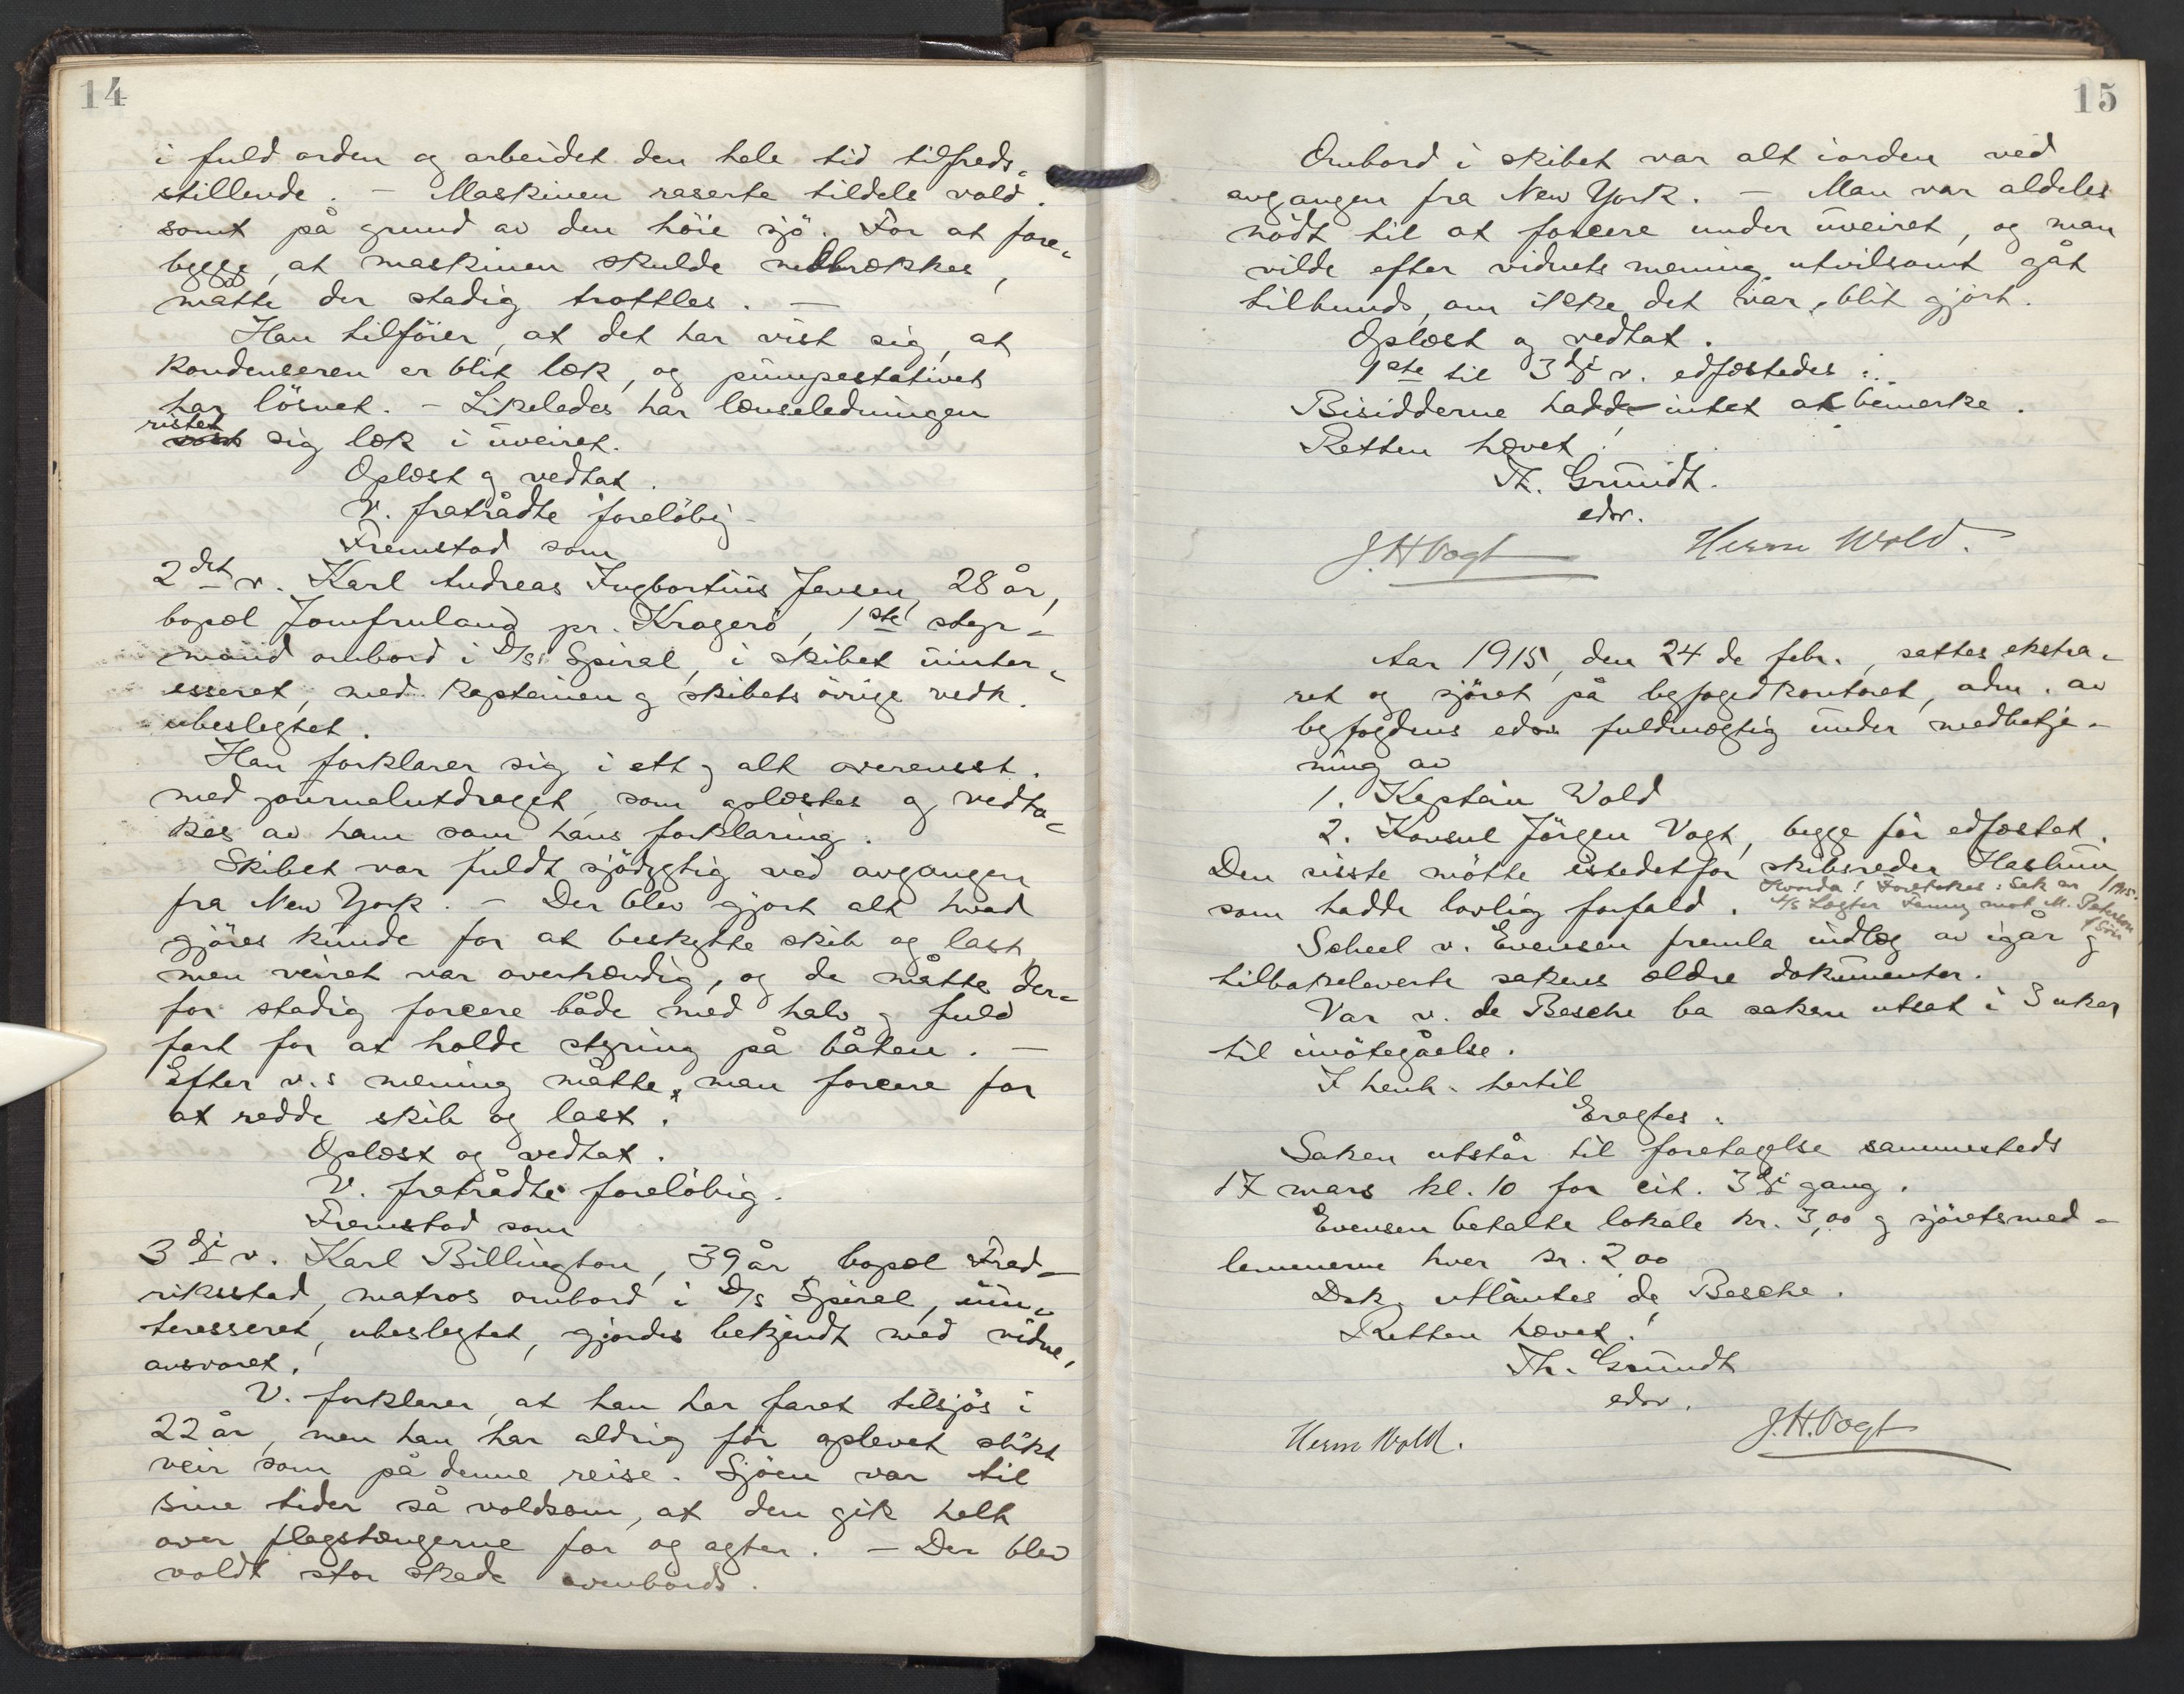 14
i fuld orden og arbeidet den hele tid tilfreds-
stillende. – Maskinen raserte tildels vold-
somt på grund av den höie sjö. For at fore-
bygge, at maskinen skulde nedbrækkes,
måtte der stadig trottles. –
Han tilförer, at det har vist sig, at
kondenseren er blit læk, og pumpestativet
har lösnet. – Likeledes har lænseledningen
ristet sig læk i uveiret.
Oplæst og vedtat.
V. fratrådte foreløbig.
Fremstod som
2det v. Karl Andreas Ingbortius Jensen, 28 år,
bopæl Jomfruland pr. Kragerö, 1ste styr-
mand ombord i D/s Spiral, i skibet uinter-
esseret, med kapteinen og skibets övrige vedk.
ubeslegtet.
Han forklarer sig i ett og alt overensst.
med journalutdraget, som oplæstes og vedto-
kes av ham som hans forklaring.
Skibet var fuldt sjödygtig ved avgangen
fra New York. – Der blev gjort alt hvad
gjöres kunde for at beskytte skib og last
men veiret var overhændig, og de måtte der-
for stadig forcere både med halv og fuld
fart for at holde styring på båten. –
Efter v.s mening måtte man forcere for
at redde skib og last.
Oplæst og vedtat.
V. fratrådte forelöbig.
Fremstod som
3dje v. Karl Billington, 39 år, bopæl Fred-
riksstad, matros ombord i D/s Spiral, uin-
teresseret, ubeslegtet, gjordes bekjendt med vidne-
ansvaret.
V. forklarer, at han har faret tilsjös i
22 år, men han har aldrig för oplevet slikt
veir som på denne reise. Sjöen var til
sine tider så voldsom, at den gik helt
over flagstængerne for og agter. – Der blev
voldt stor skade ovenbords.
15
Ombord i skibet var alt iorden ved
avgangen fra New York. – Man var aldeles
nödt til at forcere under uveiret, og man
vilde efter vidnets mening utvilsomt gåt
tilbunds, om ikke det var blit gjort.
Oplæst og vedtat.
1ste til 3dje v. edfæstedes.
Bisidderne hadde intet at bemerke.
Retten hævet!
Th. Grundt.
edsv.
J.H. Vogt Herm Wold.
Aar 1915, den 24de febr., sattes ekstra-
ret og sjöret på byfogedkontoret, adm. av
byfogdens edsv. fuldmægtig under medbetje-
ning av
1. Kaptein Wold
2. Konsul Jörgen Vogt, begge för edfæstet.
Den sisste mötte istedetfor skibsreder Hasbun
som hadde lovlig forfald. Hvorda! Foretokes: Sak nr /1915.
A/S Lagter Fanny mot M. Peterson
& Sön
Scheel v. Evensen fremla indlæg av igår og
tilbakeleverte sakens ældre dokumenter.
Var v. de Besche ba saken utsat i 3 uker
til imötegåelse.
I henh. hertil
Eragtes:
Saken utstår til foretagelse sammesteds
17 mars kl. 10 for cit. 3dje gang.
Evensen betalte lokale kr. 3,00 og sjöretsmed-
lemmerne hver kr. 2 00
Dok. utlåntes de Besche.
Retten hævet!
Th. Grundt
edsv.
Herm Wold. J.H. Vogt